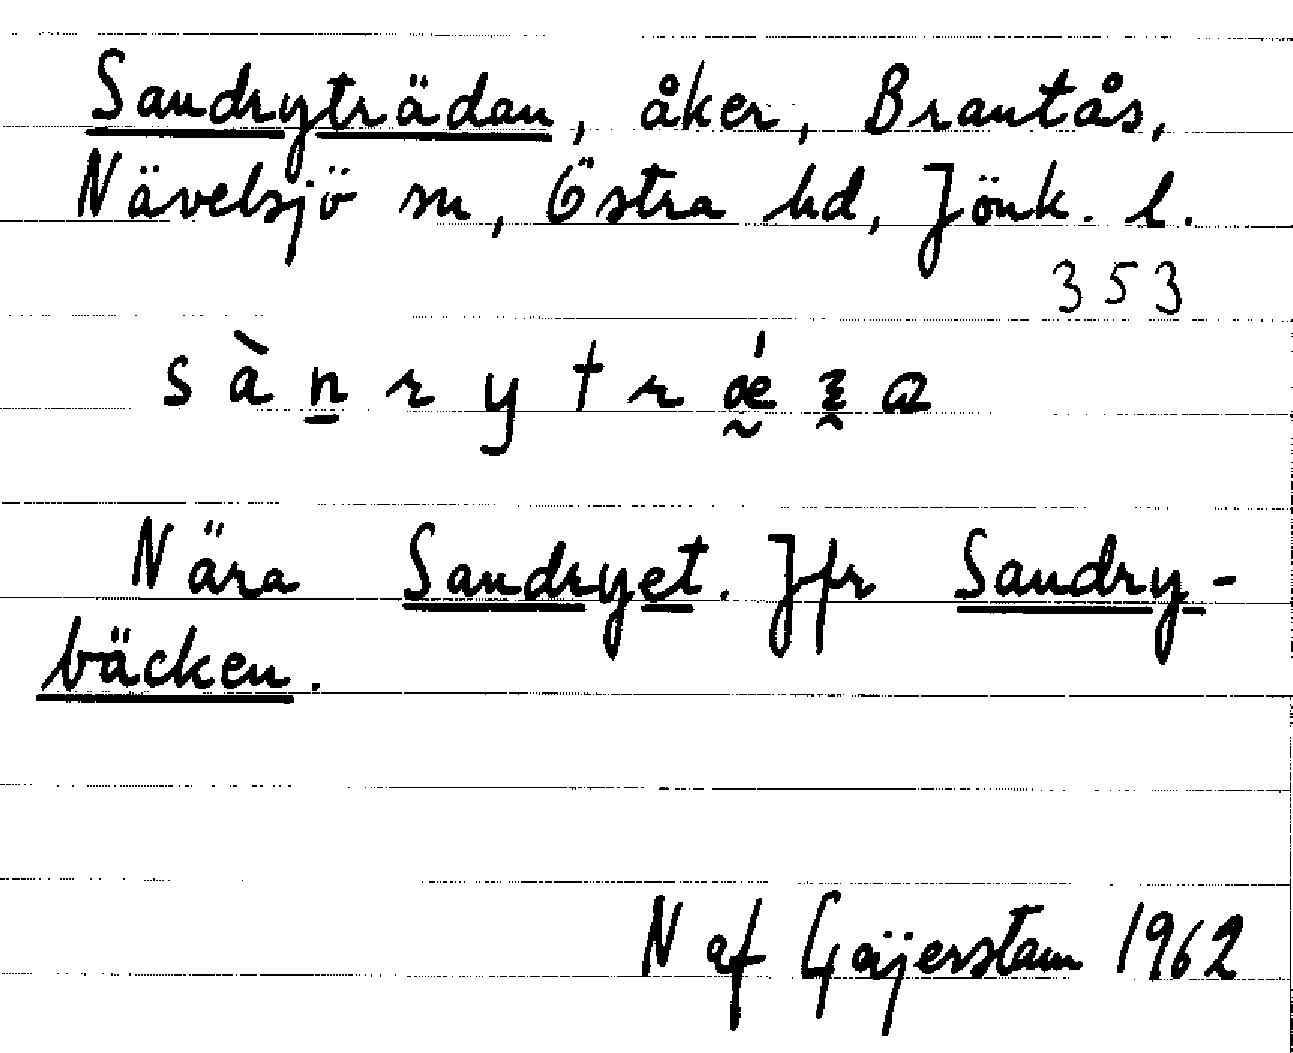 Sandryträdan, åker, Brantås,
Nävelsjö sn, Östra hd, Jönk. l.
353
Nära Sandryet. Jfr Sandry-
bäcken.
N af Gäijerstam 1962